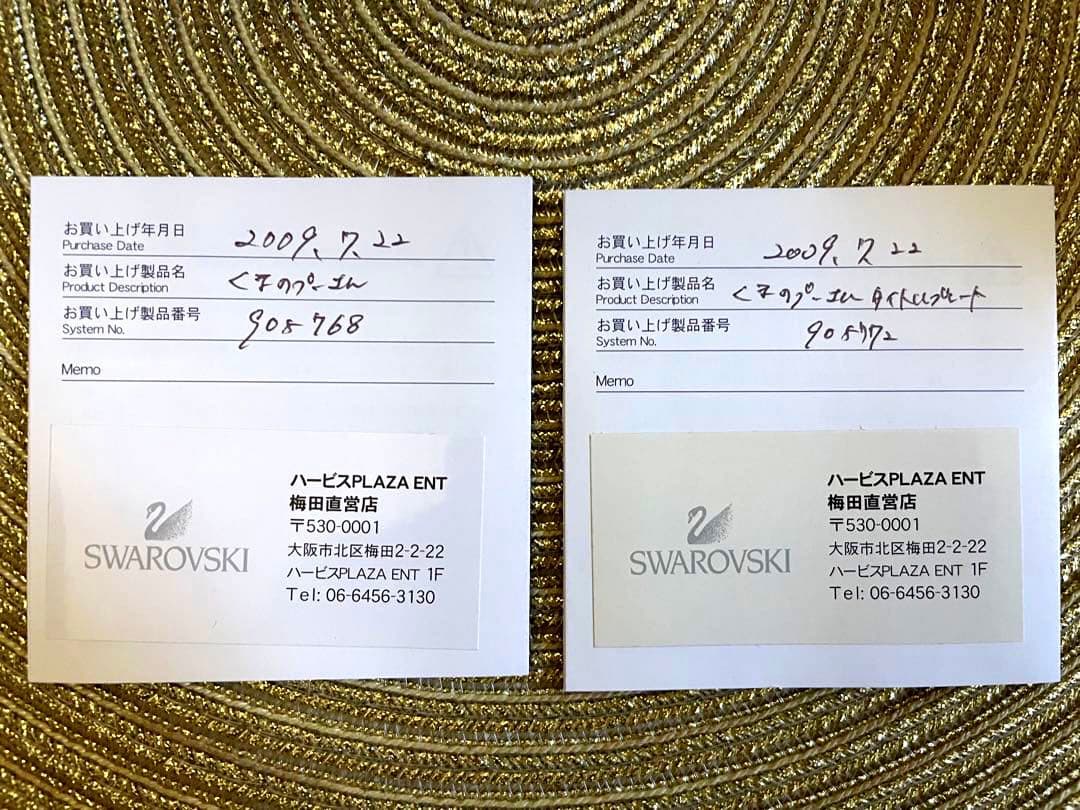 お買い上げ年月日
Purchase Date
2009.7.22
お買い上げ製品名
Product Description
くまのプーさん
お買い上げ製品番号
System No.
905768
Memo
SWAROVSKI
ハービスPLAZA ENT
梅田直営店
〒530-0001
大阪市北区梅田2-2-22
ハービスPLAZA ENT 1F
Tel: 06-6456-3130
お買い上げ年月日
Purchase Date
2009.7.22
お買い上げ製品名
Product Description
くまのプーさん タイトルプレート
お買い上げ製品番号
System No.
905772
Memo
SWAROVSKI
ハービスPLAZA ENT
梅田直営店
〒530-0001
大阪市北区梅田2-2-22
ハービスPLAZA ENT 1F
Tel: 06-6456-3130